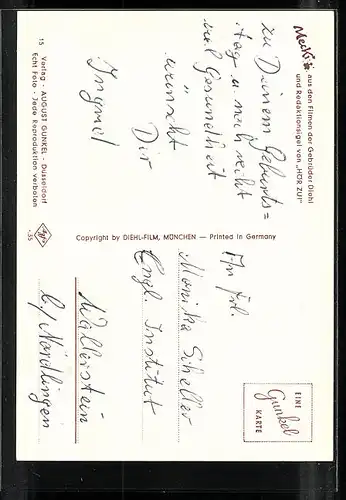 Mecki aus den Filmen der Gebrüder Diehl
und Redaktionsigel von „HÖR ZU!"
zu Deinem Geburts=
tag u. noch recht
viel Gesundheit
wünscht
Dir
Ingrid
15 Verlag - AUGUST GUNKEL - Düsseldorf
Echt Foto - Jede Reproduktion verboten
Agfa
-55
Copyright by DIEHL-FILM, MÜNCHEN — Printed in Germany
An Frl.
Monika Scheller
Engl. Institut
Wallerstein
b/Nördlingen
EINE
Gunkel
KARTE